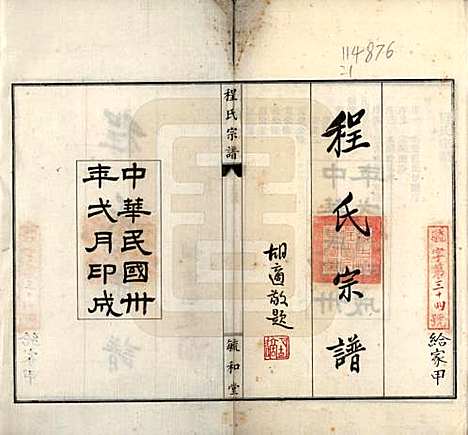 114876
21
第三十四號
給家甲
程氏宗譜
胡適敬題
程氏宗譜
毓和堂
中華民國卅
年弍月印成